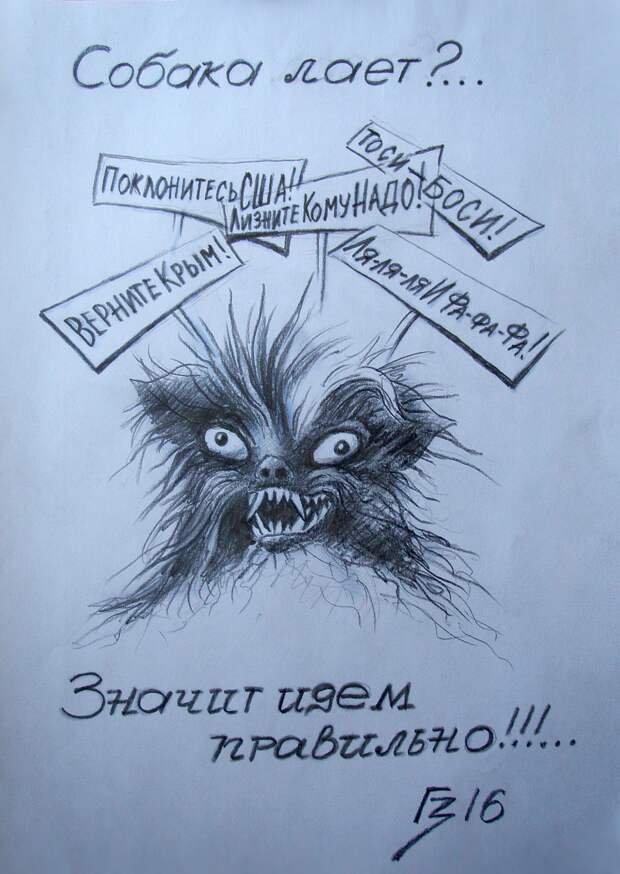 Собака лает?...
Тоси Боси!
Поклонитесь США!!
Лизните Кому Надо!
Верните Крым!
Ля-ля-ля И Фа-фа-фа!
Значит идем
правильно!!!...
ГЗ 16